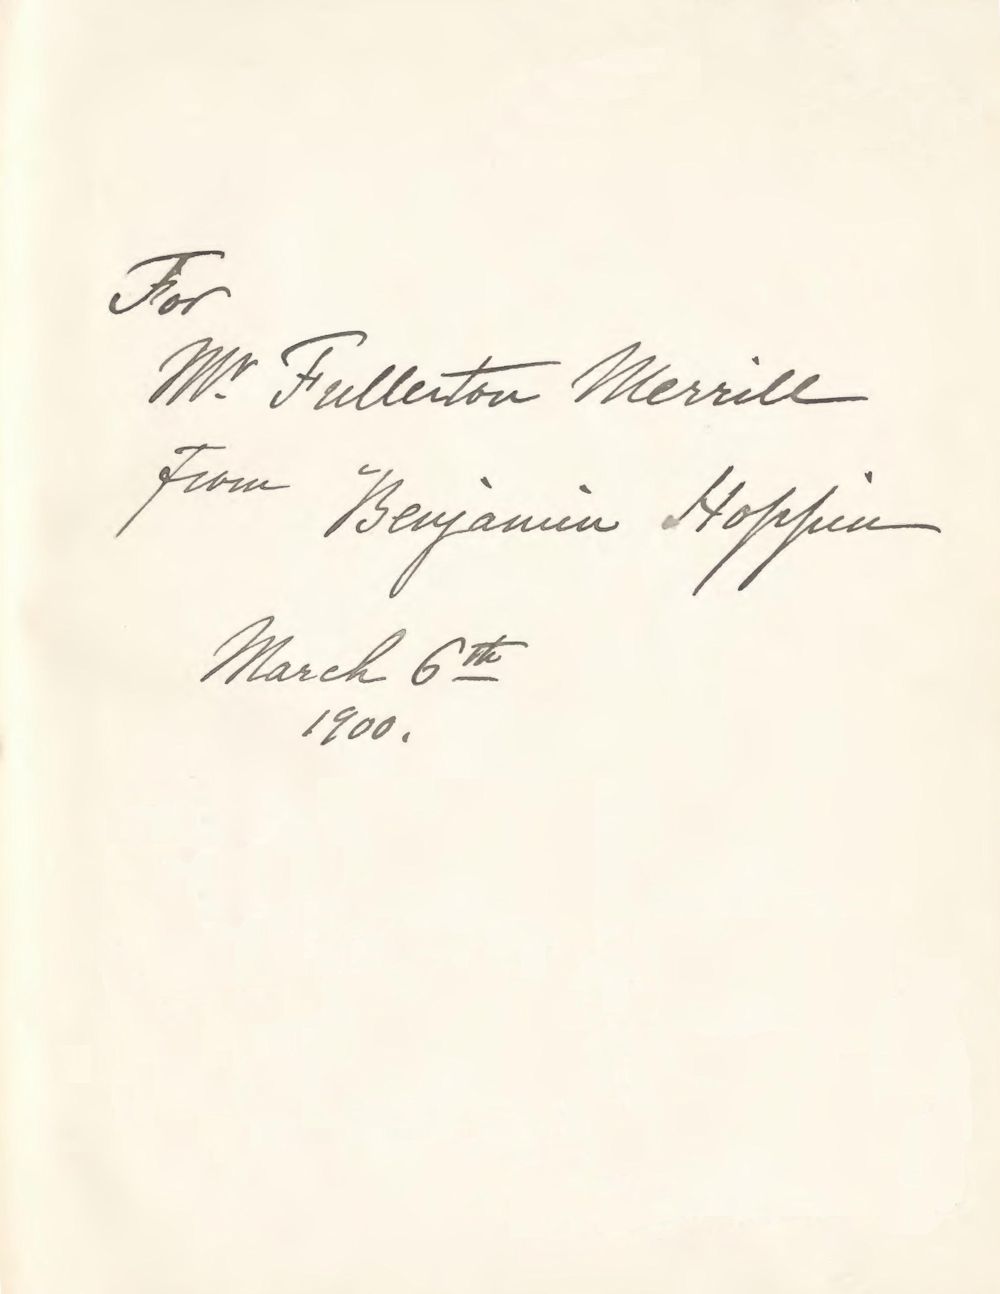 For
Mr. Fullerton Merrill
From Benjamin Hoppin
March 6th
1900.